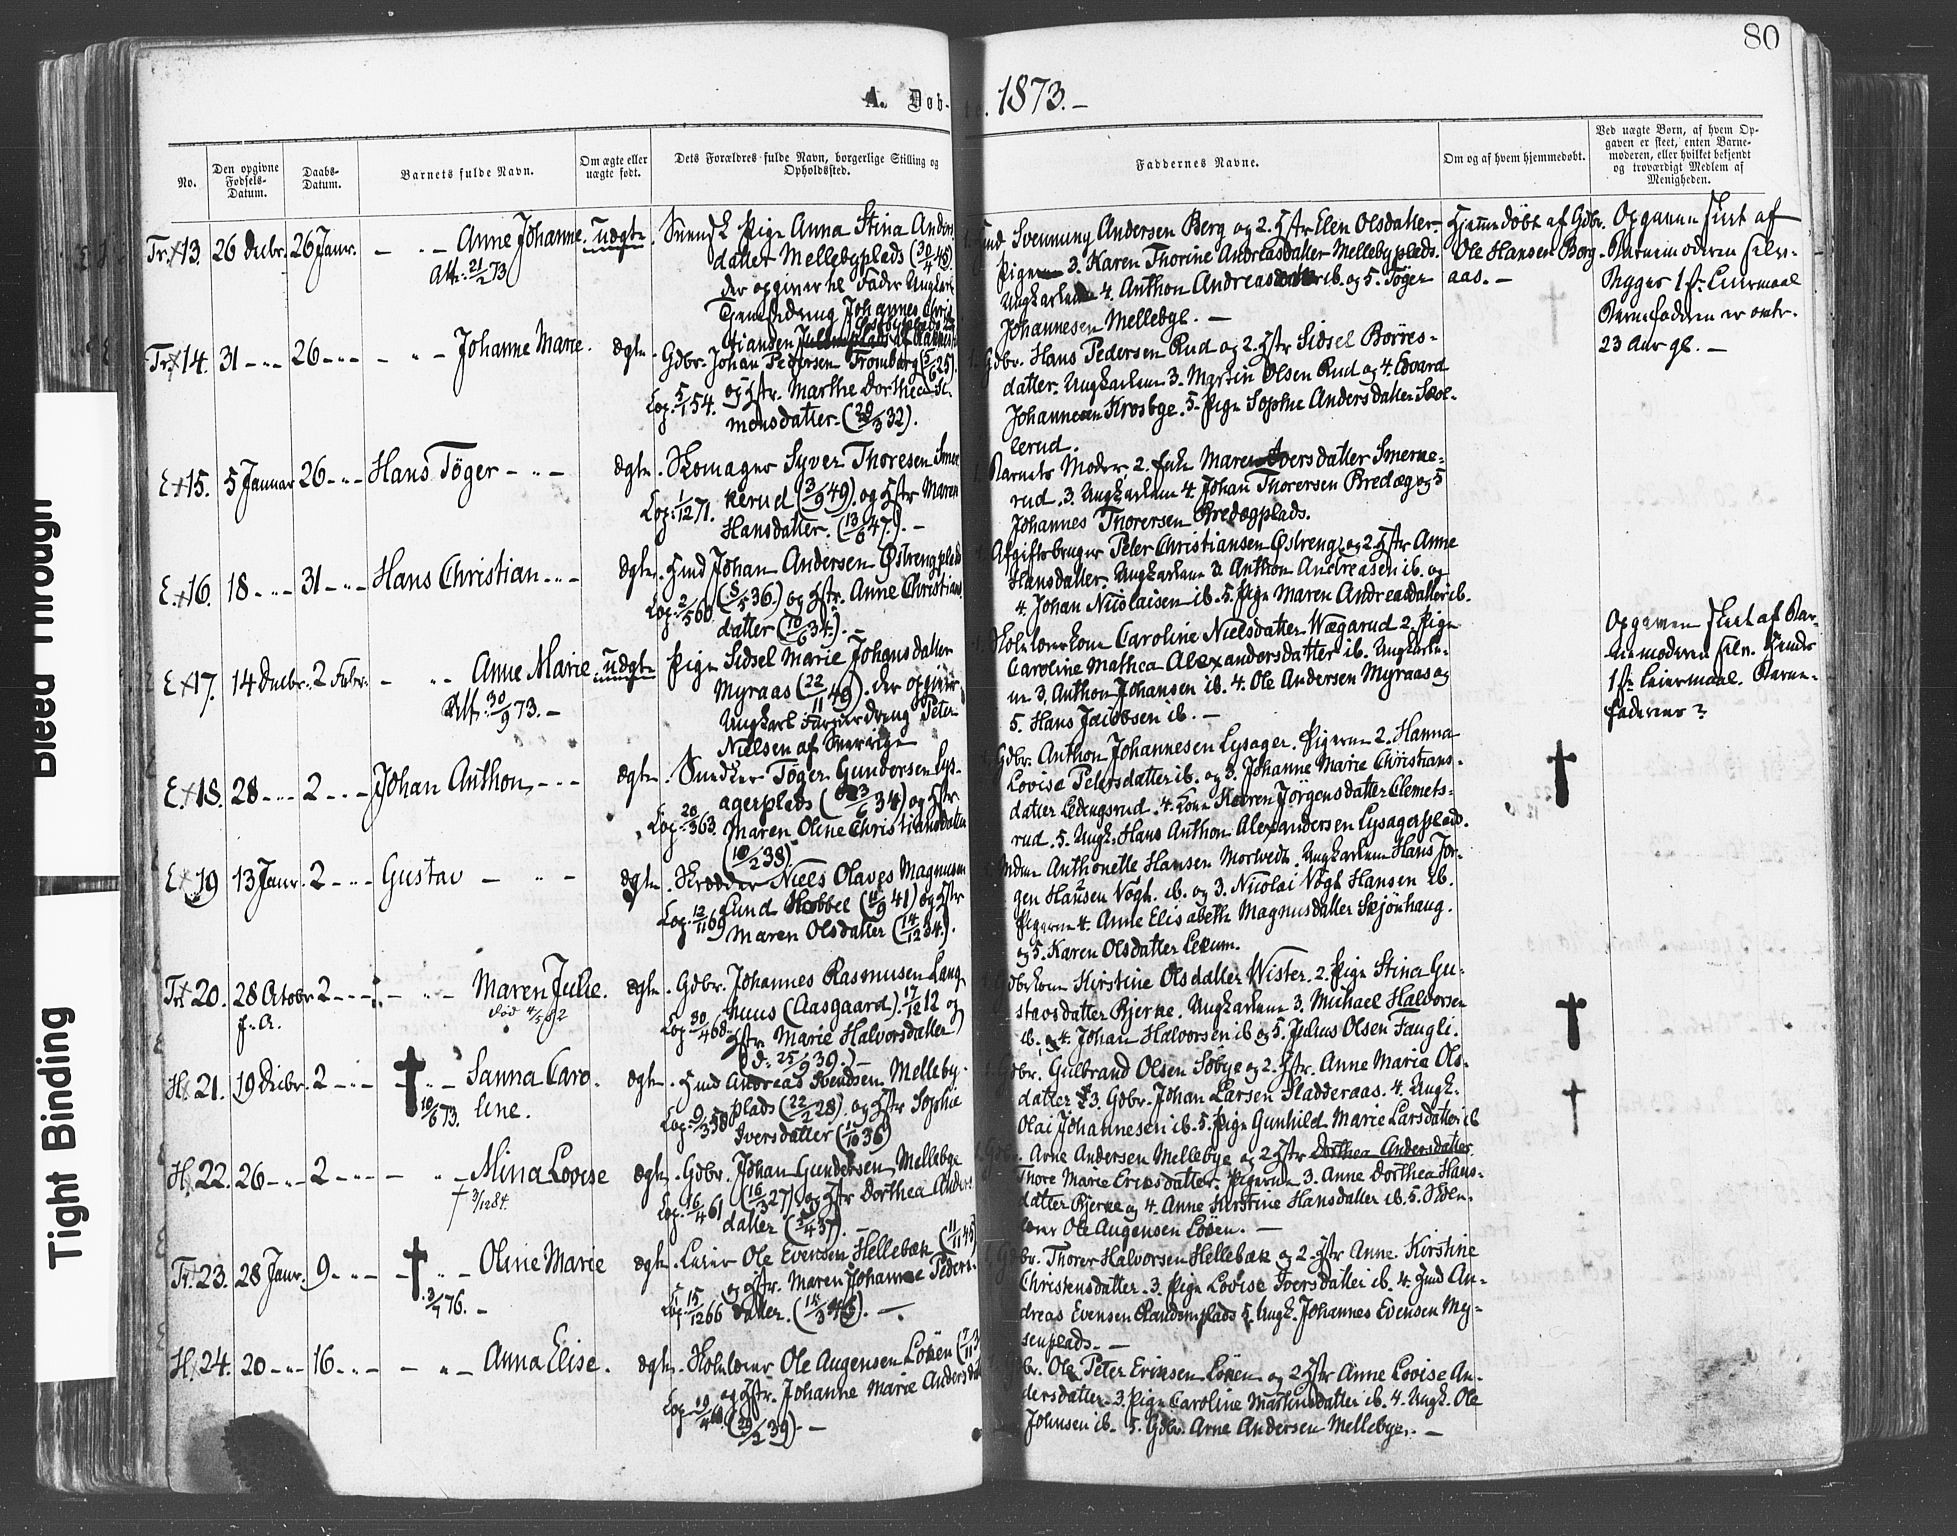 80
A. Døb-te. 1873.-
No.
Den opgivne Fødsels-Datum.
Daabs-Datum.
Barnets fulde Navn.
Om ægte eller uægte født.
Dets Forældres fulde Navn, borgerlige Stilling og Opholdssted.
Faddernes Navne.
Om og af hvem hjemmedøbt.
Ved uægte Børn, af hvem Op-
gaven er skeet, enten Barne-
moderen, eller hvilket bekjendt
og troværdigt Medlem af
Menigheden.
Tr. 13. 26 Decbr. 26 Janr. - " - Anne Johanne. uægte.
Att. 21/2 73
Svensk Pige Anna Stina Anders
datter Mellebyplads (30/4 45)
der opgiver til Fader Ungkarl
Tjenestedreng Johannes Christ
tiansen
Svenning Andersen Berg og 2. Hstr Ellen Olsdatter.
Pigerne 3. Karen Thorine Andreasdatter Mellebyplads.
Ungkarlene 4. Anthon Andreassen ib. og 5. Tøger
Johannesen Mellebye. -
Hjemmedøbt af Gdbr.
Ole Hansen Borg-
aas. -
Opgaven skeet af
Barnemoderen selv.
Begges 1ste Leiermaal
Barnefaderen er omtr.
23 Aar gl. -
Tr. 14. 31 - " - 26 - " - - " - Johanne Marie. ægte.
Gdbr. Johan Pedersen Tromborg (5/6 25).
Cop. 5/1 54. og Hstr. Marthe Dorthea Si-
monsdatter. (20/3 32).
1. Gdbr. Hans Pedersen Rud og 2. Hstr Sidsel Børres-
datter. Ungkarlene 3. Martin Olsen Rud og 4. Edvard
Johannesen Krosbye. 5. Pige Sophie Andersdatter Skol-
lerud.
E. 15. 5 Januar 26 - " - Hans Tøger - " - ægte.
Skomager Syver Thoresen Smer
Cop. 1/12 71. kerud (3/9 49). og Hstr Maren
Hansdatter. (13/6 47). -
1. Barnets Moder 2. Enke Maren Iversdatter Smerke-
rud. 3. Ungkarlene 4. Johan Thorersen Bredæg og 5
Johannes Thorersen Bredægplads.
E. 16. 18 - " - 31 - " - Hans Christian - " - ægte.
Hmd Johan Andersen Østrengplads
Cop. 2/5 60. (5/5 36.) og Hstr. Anne Christians
datter (10/6 34.). -
1. Afgiftsbruger Peter Christiansen Østreng og 2. Hstr Anne
Hansdatter. Ungkarlene 3. Anthon Andreasen ib. og
4. Johan Nicolaisen ib. 5. Pige Maren Andreasdatter ib.
E. 17. 14 Decbr. 2 Febr. - " - Anne Marie uægte
Att. 30/9 73. -
Pige Sidsel Marie Johansdatter
Myraas (22/11 49). der opgiver
Ungkarl Farverdreng Peter
Nielsen af Sverrige
1. Skolelærerkone Caroline Nielsdatter Wægarud 2. Pige
Caroline Mathea Alexandersdatter ib. Ungkarle-
ne 3. Anthon Johansen ib. 4. Ole Andersen Myraas og
5. Hans Jacobsen ib. -
Opgaven skeet af Bar-
nemoderen selv. Hendes
1ste Leiermaal. Barne-
faderens ?
E. 18. 28 - " - 2 - " - Johan Anthon - " - ægte.
Snedker Tøger Gundersen Lys-
agerplads (3/6 34) og Hstr
Cop. 20/3 63 Maren Oline Christiansdatter
(10/2 38).
1. Gdbr. Anthon Johannesen Lysager. Pigerne 2. Hanna
Lovise Petersdatter ib. og 3. Johanne Marie Christians-
datter Ledingsrud. 4. Kone Karen Jørgensdatter Clemets-
rud. 5. Ungk. Hans Anthon Alexandersen Lysagerplads.
E. 19 13 Janr. 2 - " - Gustav - " - ægte.
Skrædder Niels Olaves Magnusen
Cop. 12/11 69 Lund Hobbel (11/9 41) og Hstr
Maren Olsdatter (14/12 34.).
Anthonette Hansen Morstvedt. Ungkarlene Hans Jør-
gen Hansen Vogt. ib. og 3. Nicolai Vogt Hansen ib.
Pigerne 4. Anne Elisabeth Magnusdatter Skjønhaug.
og 5. Karen Olsdatter Lekum.
Tr. 20. 28 Octobr 2 - " - - " - Maren Julie. ægte.
f. A. død 4/5 82
Gdbr. Johannes Rasmusen Lang-
Cop. 30/4 68. nuus (Aasgaard). 17/12 12 og
Hstr. Marie Halvorsdatter
d. 25/9 39.) -
Gdbrkone Kirstine Olsdatter Wister. 2. Pige Stina Gu-
stavsdatter Bjerke. Ungkarlene 3. Michael Halvorsen
ib. og 4. Johan Halvorsen ib og 5. Julius Olsen Faugli.
H. 21. 19 Decbr. 2 - " - " - Sanna Caro-
10/6 73. line. ægte
Hmd Andreas Svendsen Melleby-
Cop. 9/3 58 plads (22/2 28). og Hstr Sophie
Iversdatter (1/10 36)
1. Gdbr. Gulbrand Olsen Søbye og 2. Hstr. Anne Marie Ols-
datter 3. Gdbr. Johan Larsen Sladderaas. 4. Ungk.
Olai Johannesen ib. 5. Pige Gunhild Marie Larsdatter ib
H. 22. 26 - " - 2 - " - - " - Mina Lovise ægte
† 3/12 84.
Gdbr. Johan Gundersen Mellebye
Cop. 16/4 61 (16/3 27) og Hstr Dorthea Anders
datter (5/4 37).
1. Gdbr. Arne Andersen Mellebye og 2 Hstr Dorthea Andersdatter
Thore Marie Eriksdatter. Pigerne 3. Anne Dorthea Hans-
datter Bjerke og 4. Anne Kirstine Hansdatter ib. 5. Skole-
lærer Ole Augensen Løken. -
Tr. 23. 28 Janr. 9 - " - - " - Oline Marie ægte
3/7 76. -
Leier Ole Evensen Hellebæk (11/11 43)
Cop. 15/12 66 og Hstr. Maren Johanne Peders-
datter. (14/3 46). -
1. Gdbr. Thorer Halvorsen Hellebæk og 2. Hstr Anne Kirstine
Christensdatter. 3. Pige Lovise Iversdatter ib. 4. Hmd An-
dreas Evensen Randemplads 5. Ungk. Johannes Evensen My-
senplads. -
H. 24. 20 - " - 16 - " - - " - Anna Elise. ægte.
Skolelærer Ole Augensen Løken
Cop. 19/4 60. og Hstr. Johanne Marie Andersdat
(29/2 39). -
Gdbr. Ole Peter Eriksen Løken og 2 Hstr Anne Lovise An-
dersdatter. 3. Pige Caroline Martinsdatter ib. 4. Ungk. Ole
Johnsen ib. 5. Gdbr. Arne Andersen Mellebye. -
Bleed Through
Tight Binding